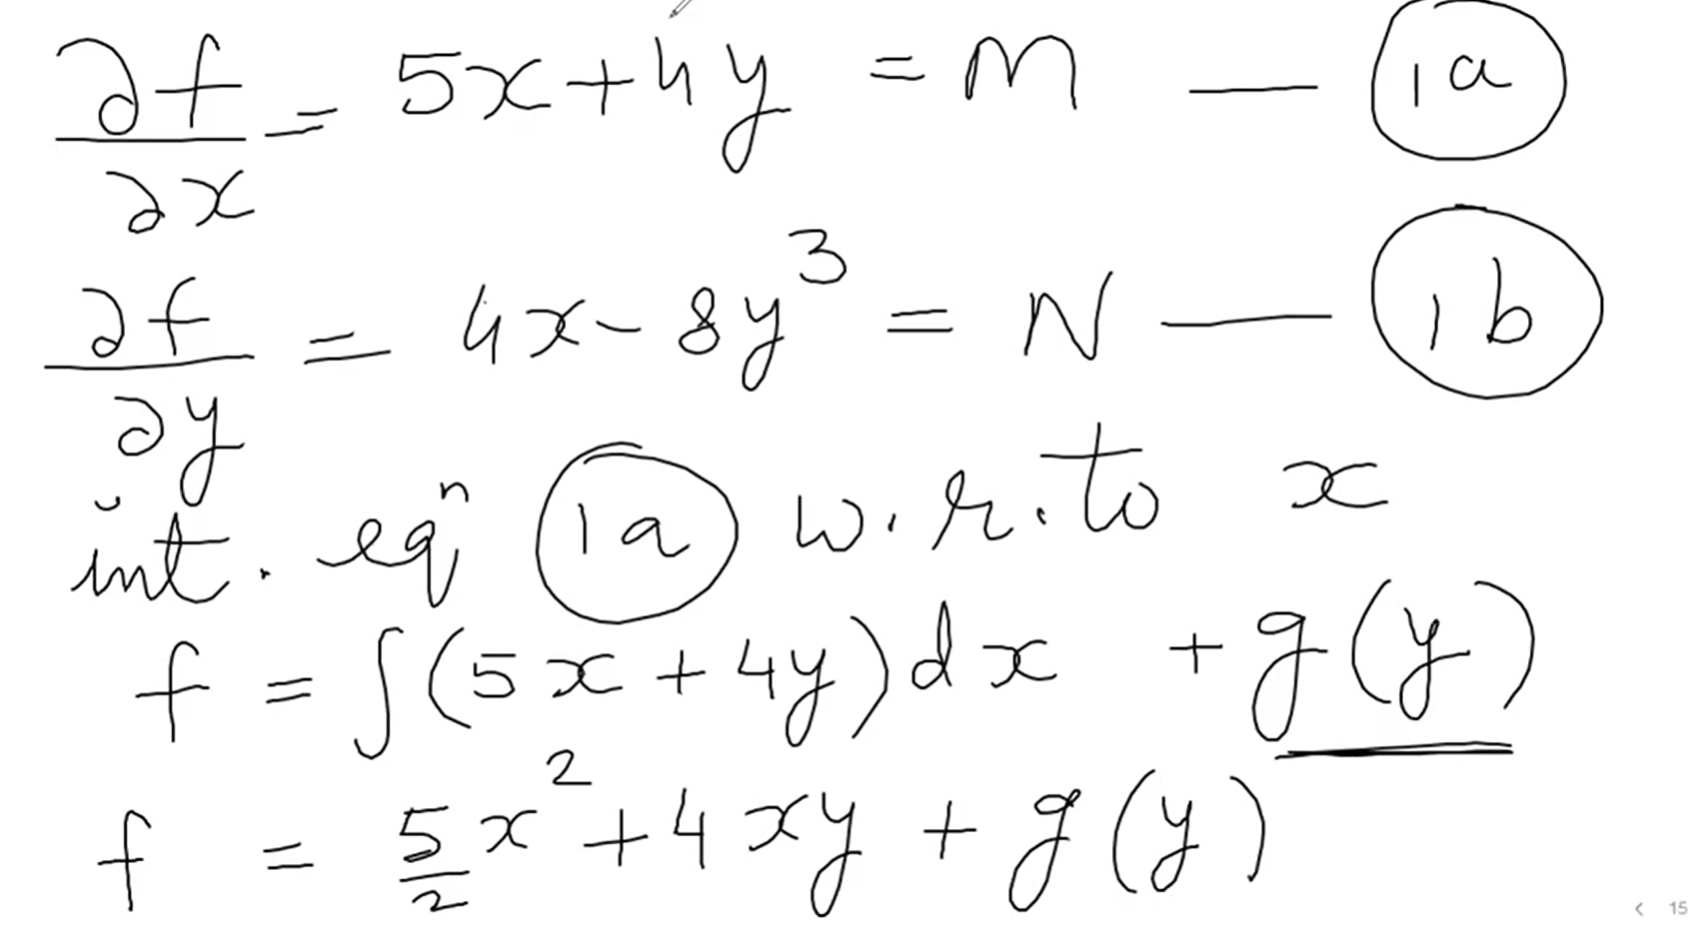 ∂f/∂x = 5x + 4y = M — (1a)
∂f/∂y = 4x - 8y³ = N — (1b)
int. eqⁿ (1a) w.r.to x
f = ∫(5x + 4y)dx + g(y)
f = 5/2 x² + 4xy + g(y)
< 15